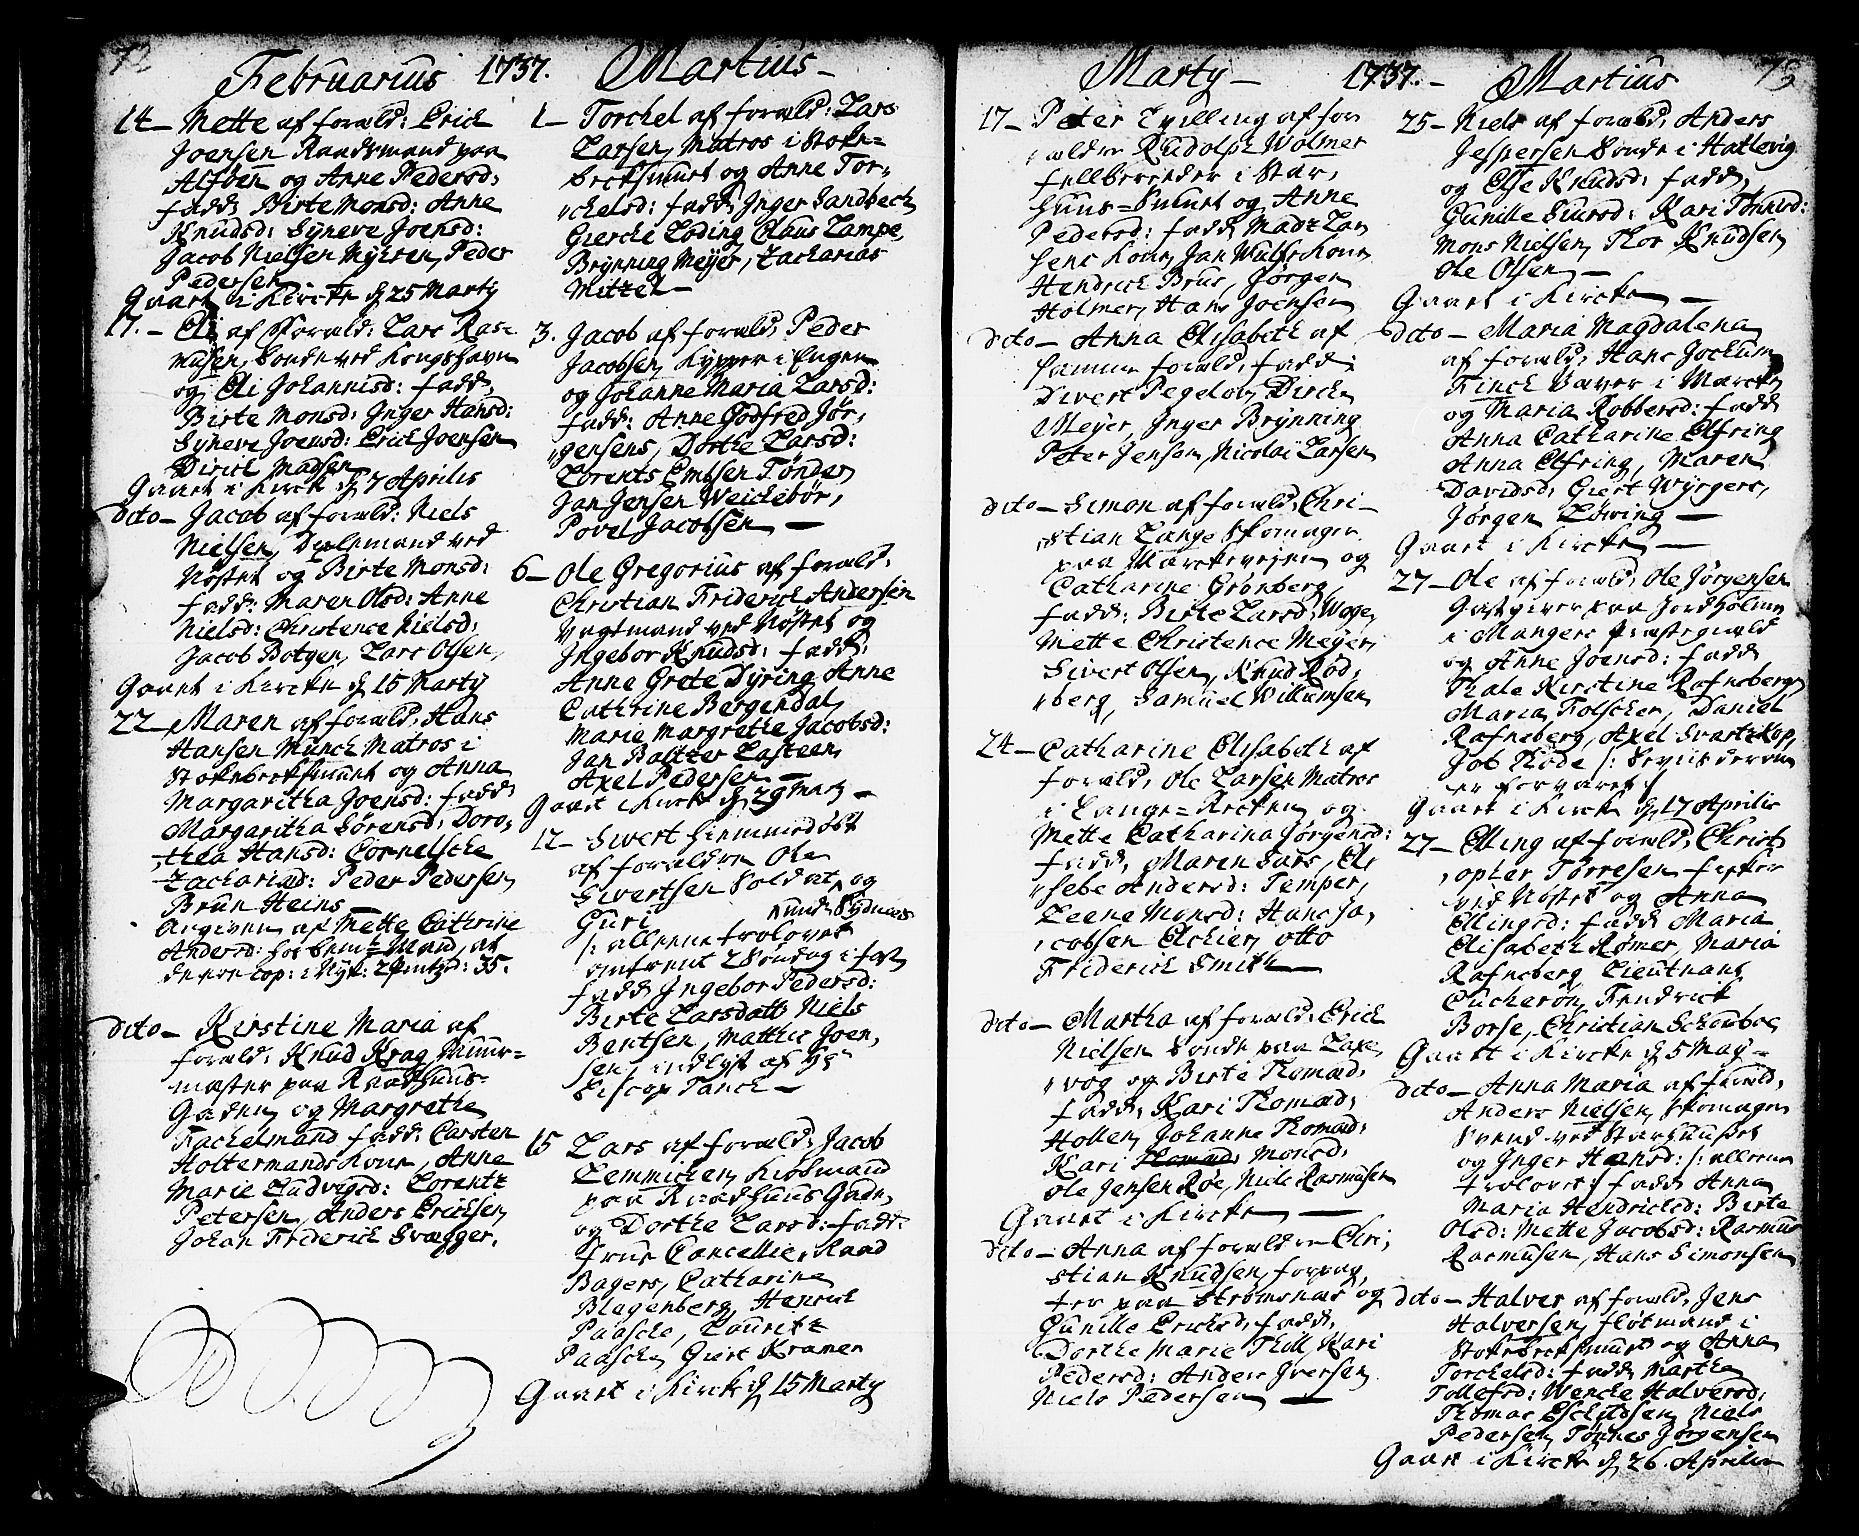 72
Februarius 1737. Martius
14 Mette af foræld: Erick
Joensen Raadsmand paa
Alföen og Anne Pedersd:
fadd: Birte Monsd: Anne
Knudsd: Sÿneve Joensd:
Jacob Nielsen Mÿren, Peder
Pedersen
Gaaet i Kircke d 25 Marty
17. Eli af Foræld: Lars Ras-
musen, bonde ved Kongshavn
og Eli Johannisd: fadd:
Birte Monsd: Inger Hansd:
Sÿneve Joensd: Erick Joensen
Dirick Madsen
Gaaet i Kirck d 7 Aprilis
dito Jacob af foræld: Niels
Nielsen, mand ved
Nöstet og Birte Monsd:
fadd: Maren Olsd: Anne
Nielsd: Christence Nielsd:
Jacob Botgen, Lars Olsen,
Gaaet i Kircke d 15 Marty
22 Maren af foræld: Hans
Hansen Munch Matros i
Stokebrekssmuut og Anna
Margaritha Joensd: fadd:
Margaritha Sörensd: Doro,
thea Hansd: Cornelsche
Zachariæd: Peder Pedersen,
Brun Heins
Angiven af Mette Cathrine
Andersd: for Mand, at
de ere cop: i Nyk: 2 35.
dito Kirstine Maria af
foræld: Knud Krag Muur-
mester paa Raadhuus-
Gaden, og Margrethe
Fachelmand fadd: Carsten
Holtermands Kone, Anne
Marie Ludvigsd: Lorentz
Petersen, Anders Ericksen,
Johan Friderich Svagger.
1 Torchel af foræld: Lars
Larsen, Matros i Stoke-
brekssmuet og Anne Tor,
chelsd: fadd: Inger Sandbech
Giercke Löding, Claus Lampe,
Brÿnning Meÿer, Zacharias
Mitzel
3. Jacob af foræld: Peder
Jacobsen, Kypper i Engen
og Johanne Maria Larsd:
fadd: Anne Godfred Jör,
gensens, Dorthe Larsd:
Lorents Embsen Tönder,
Jan Jensen Weickebör,
Povel Jacobsen
6 Ole Gregorius af foræld:
Christian Friderich Andersen
Vagtmand ved Nöstet og
Ingebor Knudsd: fadd:
Anne Grete Dÿring, Anne
Cathrine Bergendal,
Marie Margrethe Jacobsd:
Jan Baltzer Lasteen,
Axel Pedersen
Gaaet i Kircke d 29 Marty
12 Sivert hiemmedöbt
af forældre Ole
Sivertsen Soldat og
Guri Sydnæs
/: allene trolovet
omtrent 2 Söndag i fast
fadd Ingebor Pedersd:
Birte Larsdatt: Niels
Bentsen, Matthis Joen,
sen, indlyst af Hr
Biscop Tanck
15 Lars af foræld: Jacob
Lemmicken, Kiöbmand
paa Raadhuus Gaden,
og Dorthe Larsd: fadd:
Frue Cancellie, Raad
Bagers, Catharine
Blagenberg, Henrich
Paasche, Lauritz
Paasche, Giert Kramer
Gaaet i Kirck d 15 Marty
73
Marty 1737. Martius
17 Peter Tvilling af for
ældre Rudolph Wolmer
i Star,
huus-Smuet og Anne
Pedersd: fadd: Madz Lar,
sens Kone, Jan Wulfs Kone
Hendrich Brus, Jörgen
Holmer, Hans Joensen
dito Anna Elisabeth af
samme foræld, fadd:
Divert Pegelow, Dirck
Meÿer, Inger Brÿnning
Peter Jensen, Nicolai Larsen
dito Simon af foræld: Chri-
stian Lange Skomager
paa Marckevejen og
Catharine Grönberg,
fadd: Birte Larsd: Woge,
Mette Christence Meÿer,
Sivert Olsen, Knud Röd,
berg, Samuel Willumsen
24 Catharine Elisabeth af
foræld: Ole Larsen Matros
i Lange- og
Mette Catharina Jörgensd:
fadd: Maren Lars, Eli
sebe Andersd: Temper,
Leene Monsd: Hans Ja,
cobsen Elchier, Otto
Friderich Smith
dito Martha af foræld: Erick
Nielsen bonde paa Laxe,
vog og Birte Thomæd:
fadd: Kari Thomæd:
Hollen, Johanne Thomæd:
Kari Thomæd: Monsd:
Ole Jensen Roe, Niels Rasmusen
Gaaet i Kircke
dito Anna af forældre Chri,
stian Knudsen, forpag,
ter paa Strömsnes og
Gunille Ericksd, fadd:
Dorthe Marie Thill, Kari
Pedersd: Anders Iversen
Niels Pedersen
25 Niels af foræld: Anders
Jespersen bonde i Hatlevig
og Else Knudsd: fadd:
Gunille Siursd: Kari Tönnisd:
Mons Nielsen, Thor Knudsen,
Ole Olsen
Gaaet i Kircke
dito Maria Magdalena
af foræld: Hans Jochum
Finck Væver i Marcken
og Maria Robbersd: fadd
Anna Catharine Elfring
Anna Elfring, Maren
Davidsd: Giert Wÿrgers,
Jörgen Löwing
Gaaet i Kircke
27 Ole af foræld: Ole Jörgensen
Gastgiver paa Jordholmen
i Mangers Præstegield
og Anne Joensd: fadd
Thale Kirstine Rafneberg
Maria Folscher, Daniel
Rafneberg, Axel Svartskop,
Job Röde /: Beviis derom
er forvaret /
Gaaet i Kircke d 17 Aprilis
27 Elling af foræld: Christ,
opher Törresen, fisker
ved Nöstet og Anna
Ellingsd: fadd: Maria
Elisabeth Römer, Maria
Rafneberg, Lieutnant
Cucherön, Fendrick
Borse, Christian Schouboe
Gaaet i Kircke d 5 May
dito Anna Maria af foræld,
Anders Nielsen, Skomager
Svend ved Starhuuset
og Inger Hansd: /: allene
trolovet / fadd Anna
Maria Hendricksd: Birte
Olsd: Mette Jacobsd: Rasmus
Rasmusen, Hans Simonsen
dito Halver af foræld, Jens
Halversen, flötmand i
Stokebrekssmuet og Anna
Torchelsd: fadd: Marthe
Tollefsd: Wencke Halversd,
Thomas Eschildsen, Niels
Pedersen Tönnes Jörgensen
Gaaet i Kircke d 26. Aprilis